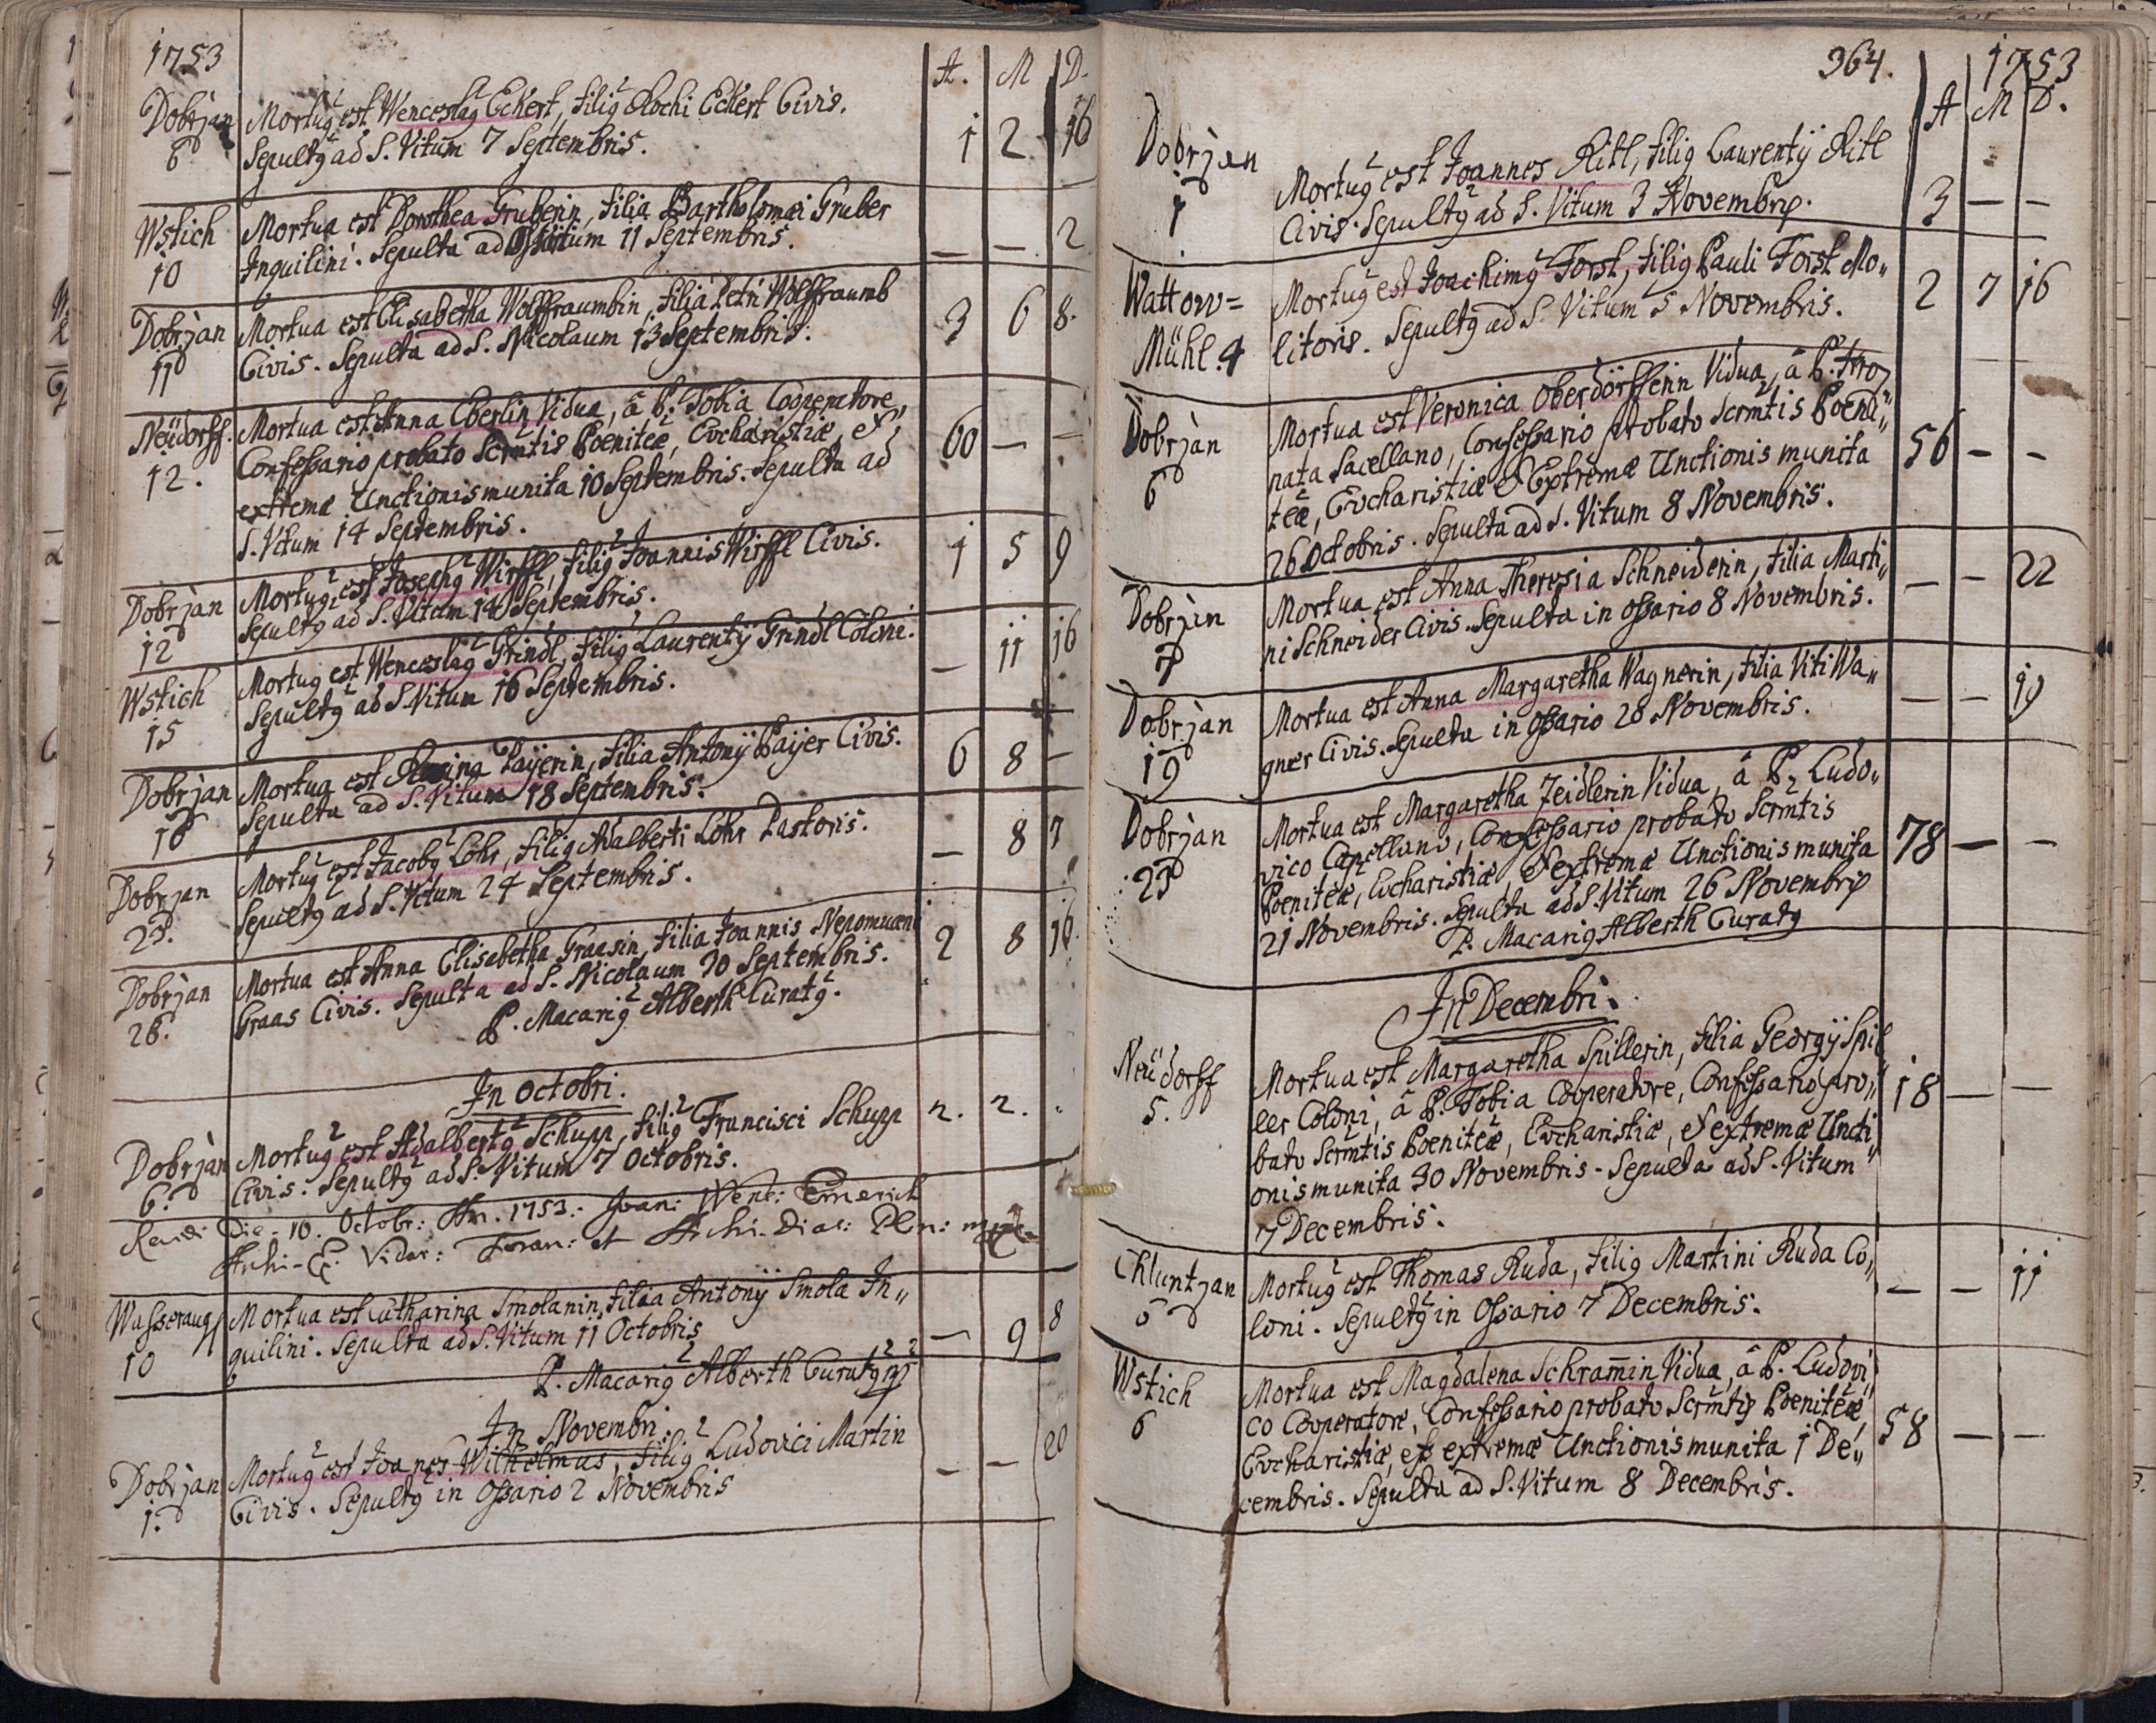 1753
A. M D.
Dobrjan Mortuꝰ est Wenceslaꝰ Eckert, filiꝰ Rochi Eckert Civis.
6 Sepultꝰ ad S. Vitum 7 Septembris. 1 2 16
Wstich Mortua est Dorothea Gruberin, filia Bartholomæi Gruber
10 Inquilini. Sepulta ad 11 Septembris. — — 2
Dobrjan Mortua est Elisabetha Wolffraumbin, filia Petri Wolffraumb
11 Civis. Sepulta ad S. Nicolaum 13 Septembris. 3 6 8.
Neüdorff. Mortua est Anna Eberlin Vidua, â P. Tobia Cooperatore,
12. Confessario probato Scrmtis Poeniteæ, Evcharistiæ, et 60 — —
extremæ Unctionis munita 10 Septembris. Sepulta ad
S. Vitum 14 Septembris.
Dobrjan Mortuꝰ est Josephꝰ Wirffl, filiꝰ Joannis Wirffl Civis. 1 5 9
12 Sepultꝰ ad S. Vitum 14 Septembris.
Wstich Mortuꝰ est Wenceslaꝰ Grindl, filiꝰ Laurentÿ Grindl Coloni. — 11 16
15 Sepultꝰ ad S. Vitum 16 Septembris.
Dobrjan Mortua est Paÿerin, filia Antonÿ Paÿer Civis. 6 8 —
Sepulta ad S. Vitum 18 Septembris.
Dobrjan Mortuꝰ est Jacobꝰ Löhr, filiꝰ Adalberti Löhr Pastoris. — 8 7
23. Sepultꝰ ad S. Vitum 24 Septembris.
Dobrjan Mortua est Anna Elisabetha Graasin, filia Joannis Nepomuceni 2 8 16.
28. Graas Civis. Sepulta ad S. Nicolaum 30 Septembris.
P. Macariꝰ Alberth Curatꝰ.
In Octobri.
Dobrjàn Mortuꝰ est Adalbertꝰ Schupp, filiꝰ Francisci Schupp 2. 2.
6. Civis. Sepultꝰ ad S. Vitum 7 Octobris.
Die 10. Octobr: An. 1753. Joan: Wenc: Emerich
Vicar: Foran: et Archi-Diac: Plzn:
Mortua est Catharina Smolanin, filia Antonÿ Smola In„
10 quilini. Sepulta ad S. Vitum 11 Octobris — 9 8
P. Macariꝰ Alberth Curatꝰ
In Novembri.
Dobrjan Mortuꝰ est Joanes Wilhelmus, filiꝰ Ludovici Martin — — 20
1. Civis. Sepultꝰ in Ossario 2 Novembris
364. 1753
A M D.
Dobrjan Mortuꝰ est Joannes Ritl, filiꝰ Laurentÿ Ritl
1 Civis. Sepultꝰ ad S. Vitum 3 Novembris. 3 — —
Wattow= Mortuꝰ est Joachimꝰ Forst, filiꝰ Pauli Forst Mo„ 2 7 16
Mühl. 4 litoris. Sepultꝰ ad S. Vitum 5 Novembris.
Dobrjàn Mortua est Veronica Oberdörfferin Vidua, â P.
6 Sacellano, Confessario probato Scrmtis Poeni„ 56 — —
teæ, Evcharistiæ et Extremæ Unctionis munita
26 Octobris. Sepulta ad S. Vitum 8 Novembris.
Dobrjan Mortua est Anna Theresia Schneiderin, filia Marti„ — — 22
7 ni Schneider Civis. Sepulta in ossario 8 Novembris.
Dobrjan Mortua est Anna Margaretha Wagnerin, filia Viti Wa„ — — 19
19 gner Civis. Sepulta in ossario 20 Novembris.
Dobrjan Mortua est Margaretha Zeidlerin Vidua, â P. Ludo„
23 vico Capellano, Confessario probato Scrmtis 78 — —
Poeniteæ, Evcharistiæ, et extremæ Unctionis munita
21 Novembris. Sepulta ad S. Vitum 26 Novembris
P. Macariꝰ Alberth Curatꝰ
In Decembri.
Neüdorff Mortua est Margaretha Spillerin, filia Georgÿ Spil„
5. ler Coloni, â P. Tobia Cooperatore, Confessario pro„ 18 — —
bato Scrmtis Poeniteæ, Evcharistiæ, et extremæ Uncti„
onis munita 30 Novembris. Sepulta ad S. Vitum
7 Decembris.
Chluntzan Mortuꝰ est Thomas Ruda, filiꝰ Martini Ruda Co„ — — 11
loni. Sepultꝰ in Ossario 7 Decembris.
Wstich Mortua est Magdalena Schramin Vidua, â P. Ludovi„
6 co Cooperatore, Confessario probato Scrmtis Poeniteæ, 58 — —
Evcharistiæ, et extremæ Unctionis munita 1 De„
cembris. Sepulta ad S. Vitum 8 Decembris.